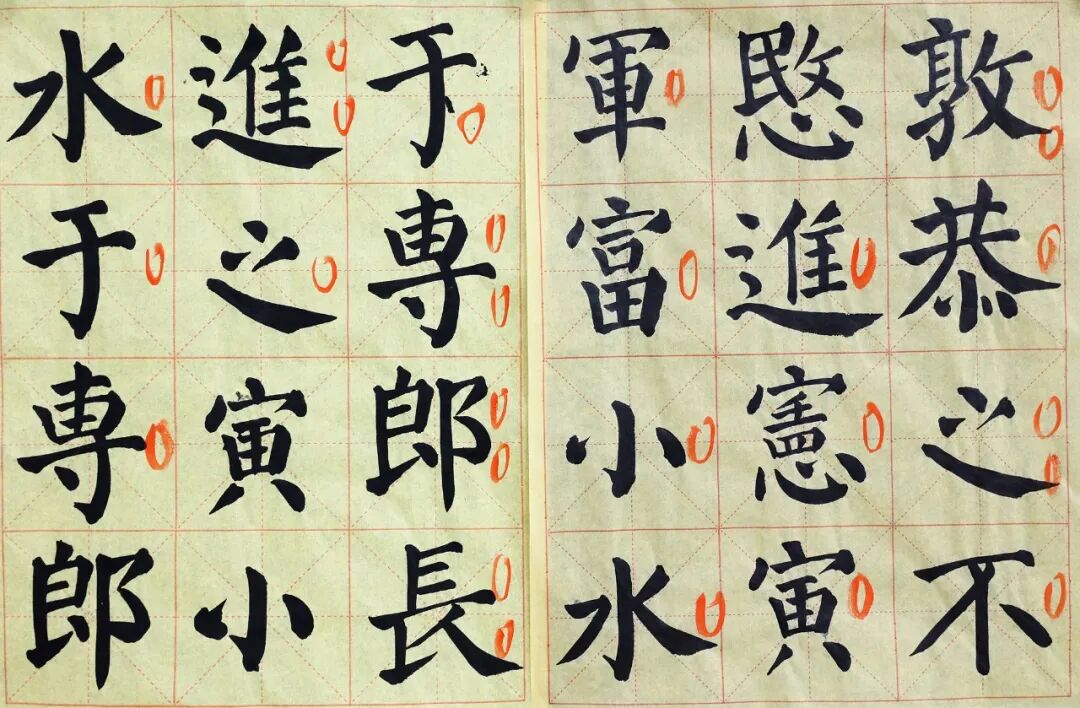 敦恭之不
愍進憲寅
軍富小水
于専郎長
進之寅小
水于専郎